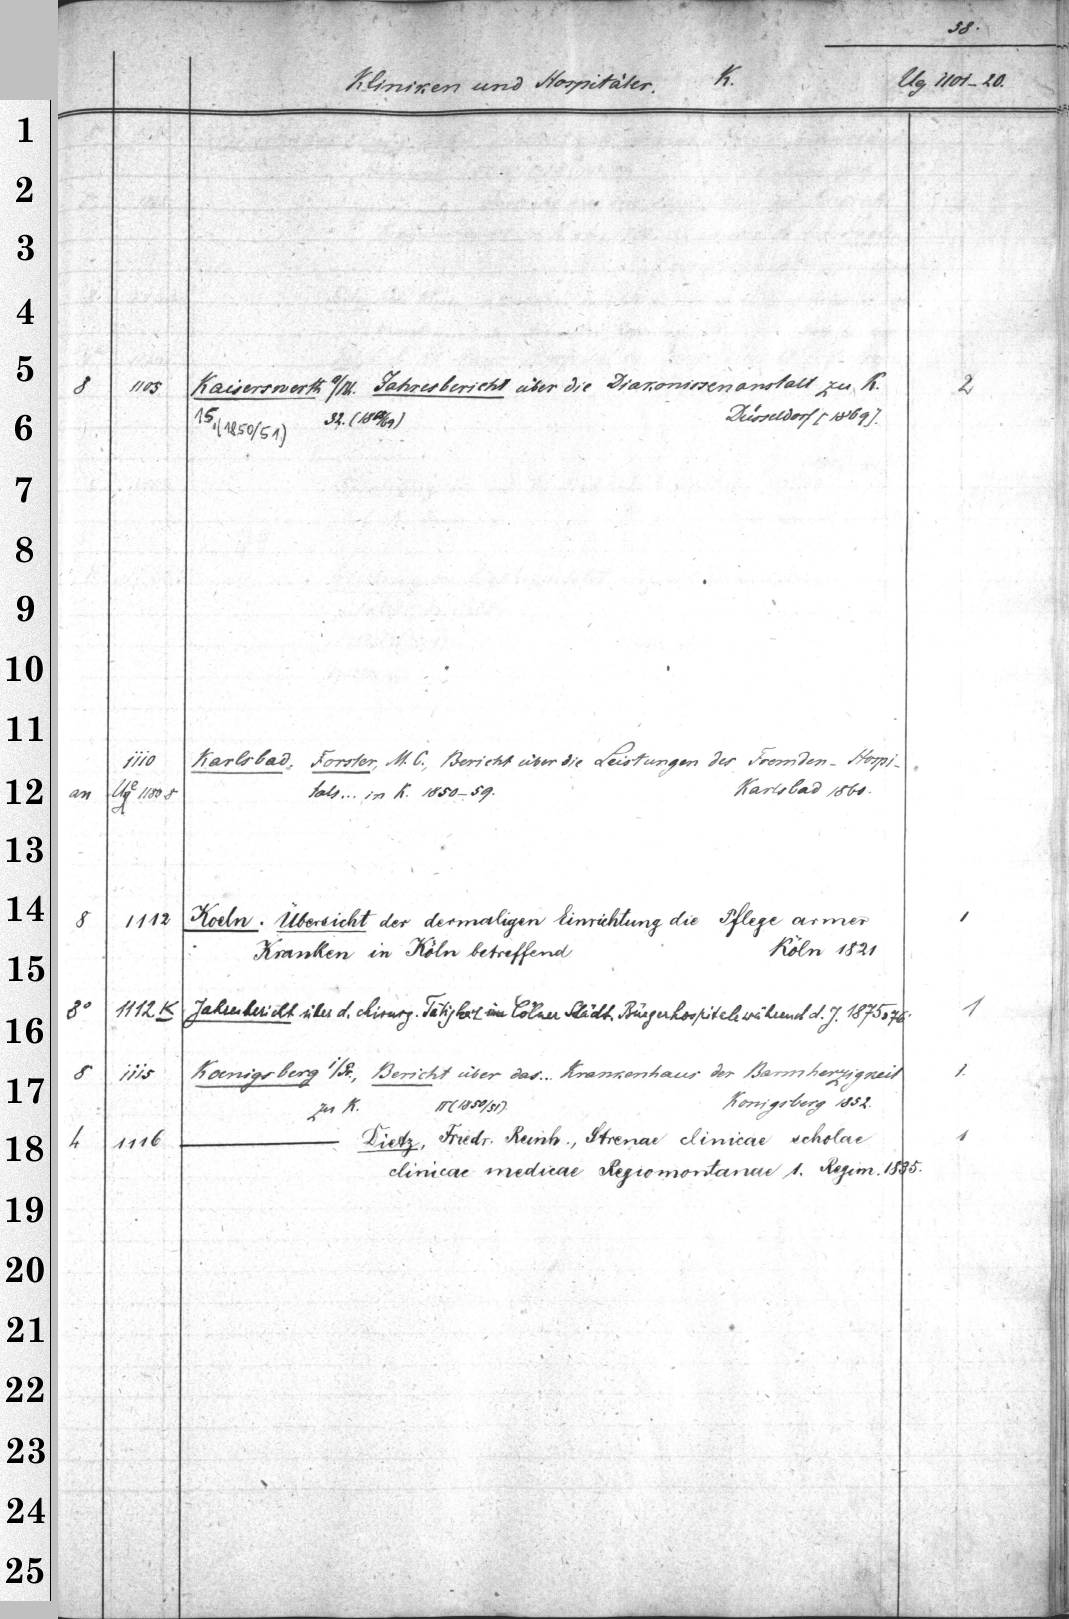 38.
Kliniken und Hospitäler. K. Ug 1101-20.
1
2
3
4
5
8 1105 Kaiserswerth a/Rh. Jahresbericht über die Diakonissenanstalt zu K. 2
6
15.(1850/51) 32. (1868/69) Düsseldorf [1869].
7
8
9
10
11
1110 Karlsbad, Forster, M. C., Bericht über die Leistungen des Fremden-Hospi-
12
an 1180 8 tals... in K. 1850-59. Karlsbad 1860.
13
14
8 1112 Koeln. Übersicht der dermaligen Einrichtung die Pflege armer 1
Kranken in Köln betreffend Köln 1821
15
8° 1112 K Jahresbericht über d. chirurg. Tätigkeit im Cölner Städt. Bürgerhospitale während d. J. 1875 u 76. 1
16
8 1115 Koenigsberg i/Pr., Bericht über das... Krankenhaus der Barmherzigkeit 1.
17
zu K. II (1850/51) Königsberg 1852.
18
4 1116 Dietz, Friedr. Reinh., Strenae clinicae scholae 1
clinicae medicae Regiomontanae 1. Regim. 1835.
19
20
21
22
23
24
25